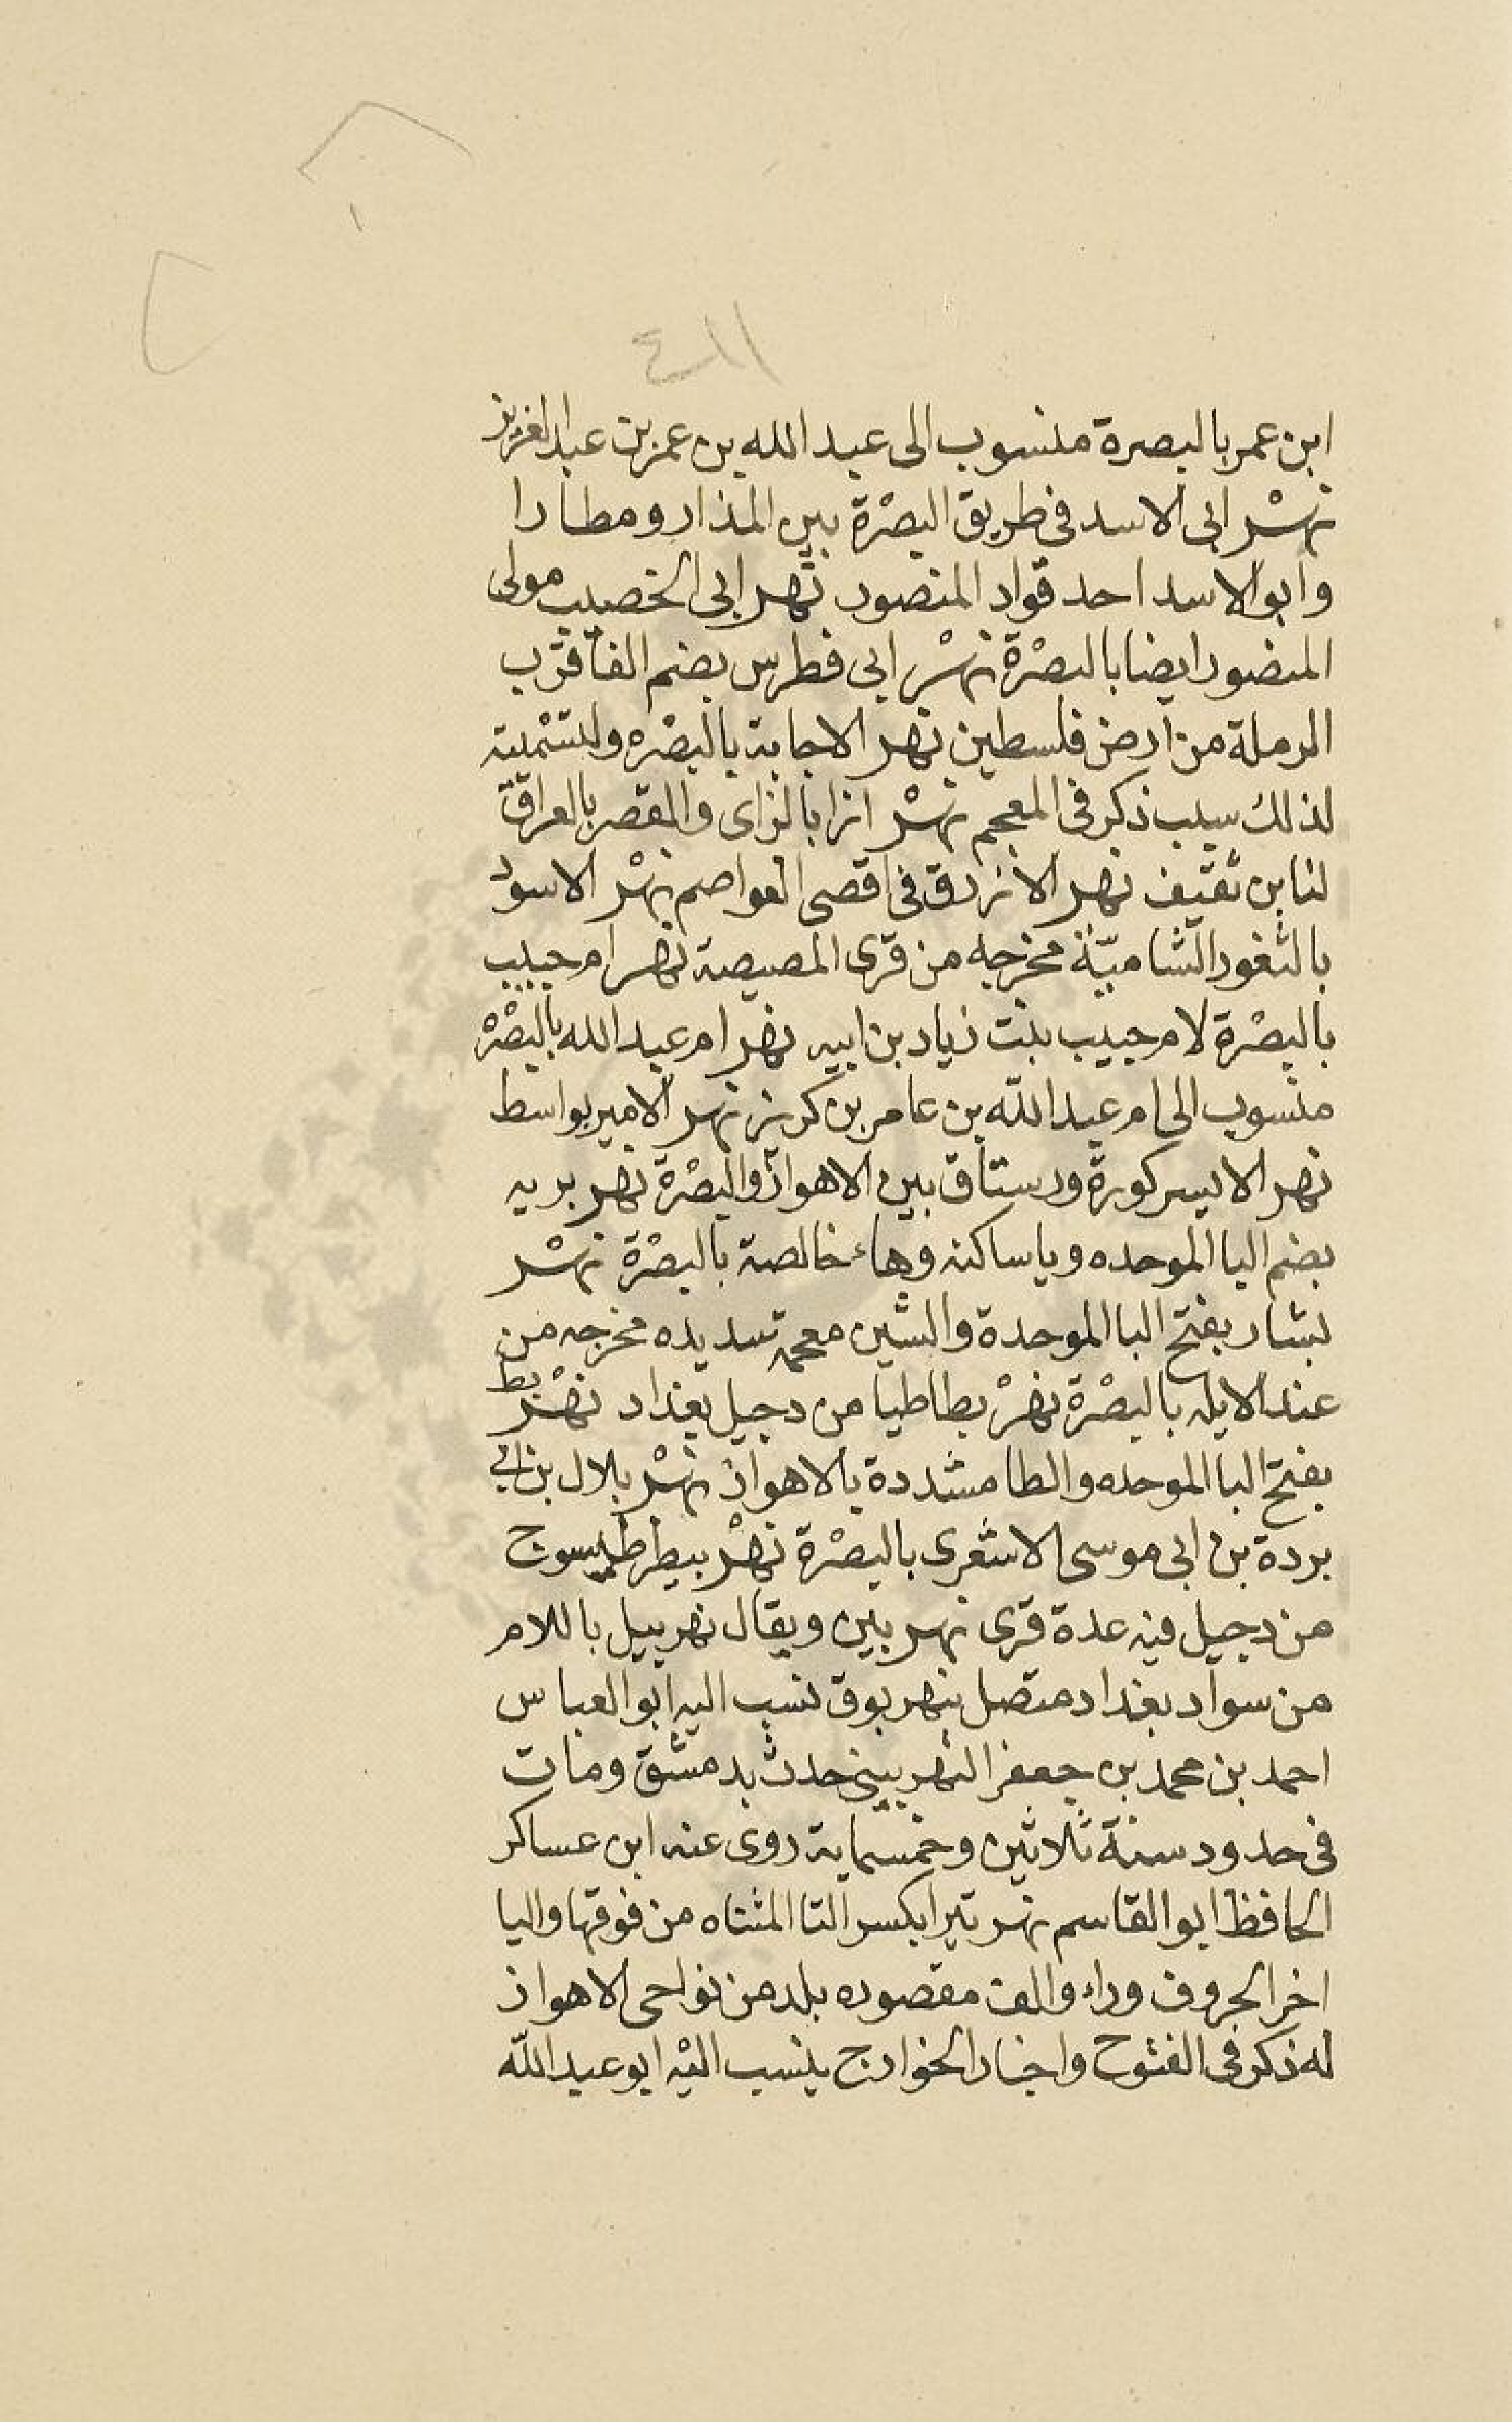 ٤١١
ابن عمر بالبصرة منسوب الى عبد الله بن عمر بن عبد العزيز
نهر ابى الاسد فى طريق البصرة بين المذار ومطارا
وابو الاسد احد قواد المنصور نهر ابى الخصيب مولى
المنصور ايضا بالبصرة نهر ابى فطرس بضم الفا قرب
الرملة من ارض فلسطين نهر الاجابة بالبصره ولتسميته
لذلك سبب ذكر فى المعجم نهر ازا بالزاى والقصر بالعراق
لنا بن ثقيف نهر الازرق فى اقصى العواصم نهر الاسود
بالثغور الشاميّة مخرجه من قرى المصيصة نهر ام حبيب
بالبصرة لام حبيب بنت زياد بن ابيه نهر ام عبد الله بالبصرة
منسوب الى ام عبد الله بن عامر بن كريز نهر الامير بواسط
نهر الايسر كورة ورستاق بين الاهواز والبصرة نهر بريه
بضم البا الموحده ويا ساكنه وهاء خالصة بالبصرة نهر
بشار بفتح البا الموحدة والشين معجمه تشديده مخرجه من
عند الابله بالبصرة نهر بطاطيا من دجيل بغداد نهر بط
بفتح البا الموحده والطا مشددة بالاهواز نهر بلال بن ابى
بردة بن ابى موسى الاشعرى بالبصرة نهر بيطر طسوج
من دجيل فيه عدة قرى نهر بين ويقال نهر بيل باللام
من سواد بغداد متصل بنهر بوق نسب اليه ابو العباس
احمد بن محمد بن جعفر النهربينى حدث بدمشق ومات
فى حدود سنة ثلاثين وخمسماية روى عنه ابن عساكر
الحافظ ابو القاسم نهر تيرا بكسر التا المثناه من فوقها واليا
اخر الحروف وراء والف مقصوره بلد من نواحى الاهواز
له ذكر فى الفتوح واخبار الخوارج ينسب اليه ابو عبد الله